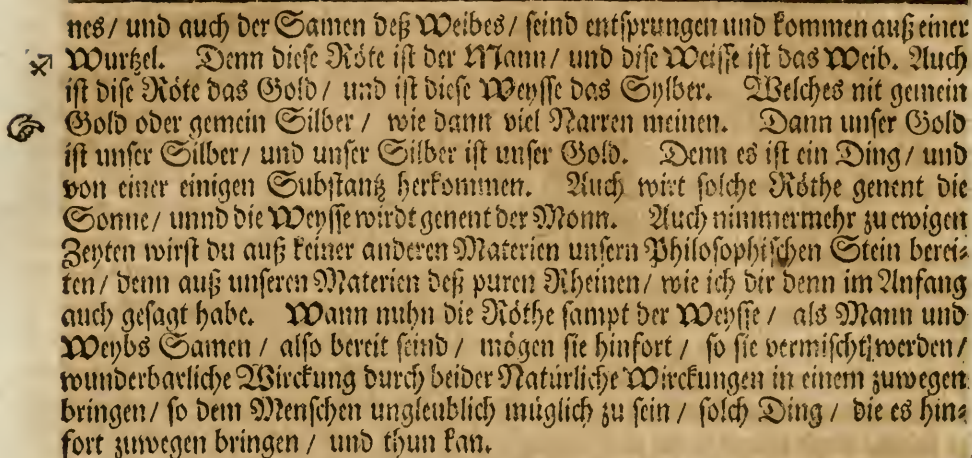 nes/ und auch der Samen deß Weibes/ seind entsprungen und kommen auß einer
Wurtzel. Denn diese Röte ist der Mann/ und dise Weisse ist das Weib. Auch
ist dise Röte das Gold/ und ist diese Weysse das Sylber. Welches nit gemein
Gold oder gemein Silber/ wie dann viel Narren meinen. Dann unser Gold
ist unser Silber/ und unser Silber ist unser Gold. Denn es ist ein Ding/ und
von einer einigen Substantz herkommen. Auch wirt solche Röthe genent die
Sonne/ unnd die Weysse wirdt genent der Monn. Auch nimmermehr zu ewigen
Zeyten wirst du auß keiner anderen Materien unsern Philosophischen Stein berei⸗
ten/ denn auß unseren Materien deß puren Rheinen/ wie ich dir denn im Anfang
auch gesagt habe. Wann nuhn die Röthe sampt der Weysse/ als Mann und
Weybs Samen/ also bereit seind/ mögen sie hinfort/ so sie vermischt werden/
wunderbarliche Wirckung durch beider Natürliche Wirckungen in einem zuwegen
bringen/ so dem Menschen ungleublich müglich zu sein/ solch Ding/ die es hin⸗
fort zuwegen bringen/ und thun kan.